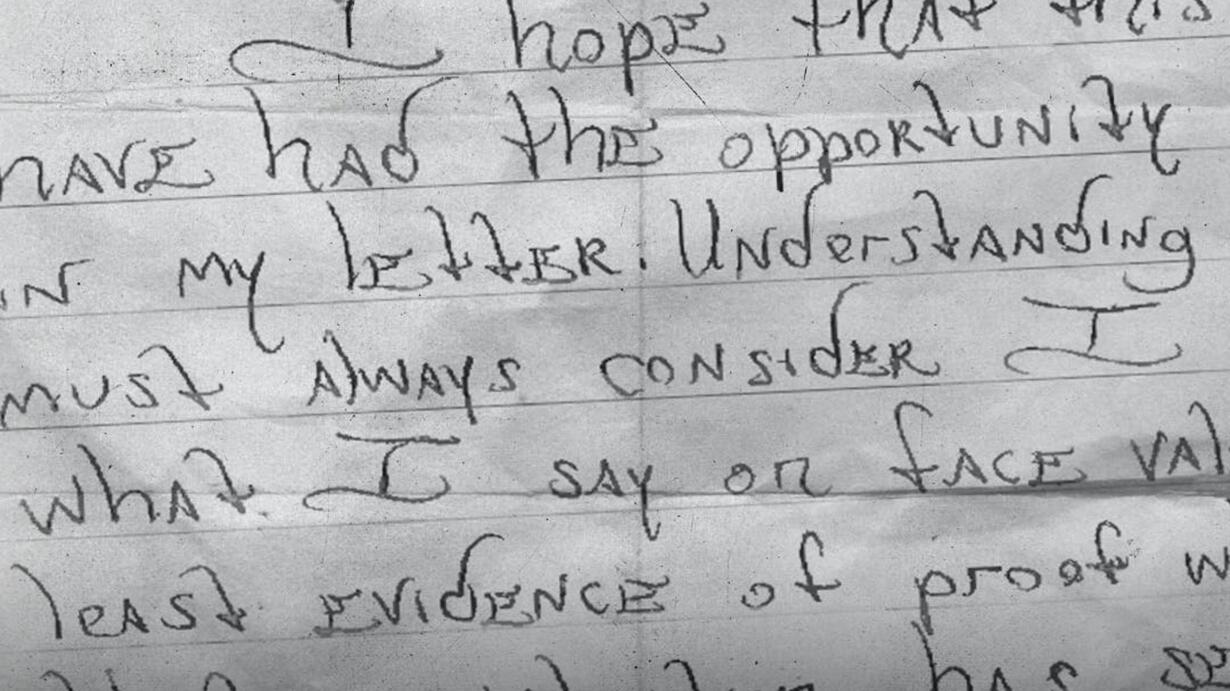 I hope that this
have had the opportunity
in my letter. Understanding
must always consider I
what I say on face val
least evidence of proof w
has se